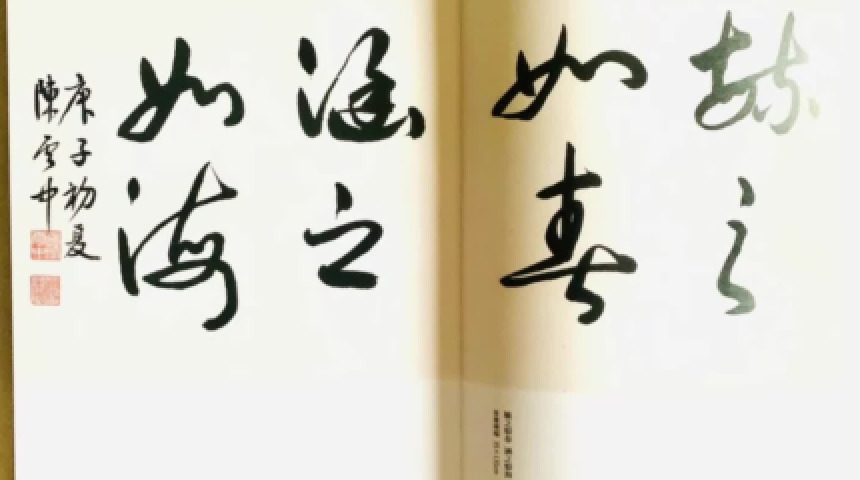 之
如春
涵之
如海
庚子初夏
陳雲